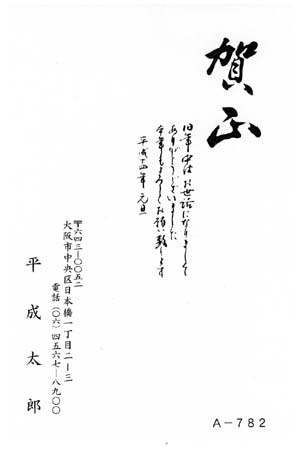 賀正
旧年中はお世話になりまして
ありがとうございました
今年もよろしくお願い致します
平成十四年 元旦
〒六四三―〇〇五二
大阪市中央区日本橋一丁目二―三
電話(〇六)四五六七―八九〇〇
平成太郎
A-782